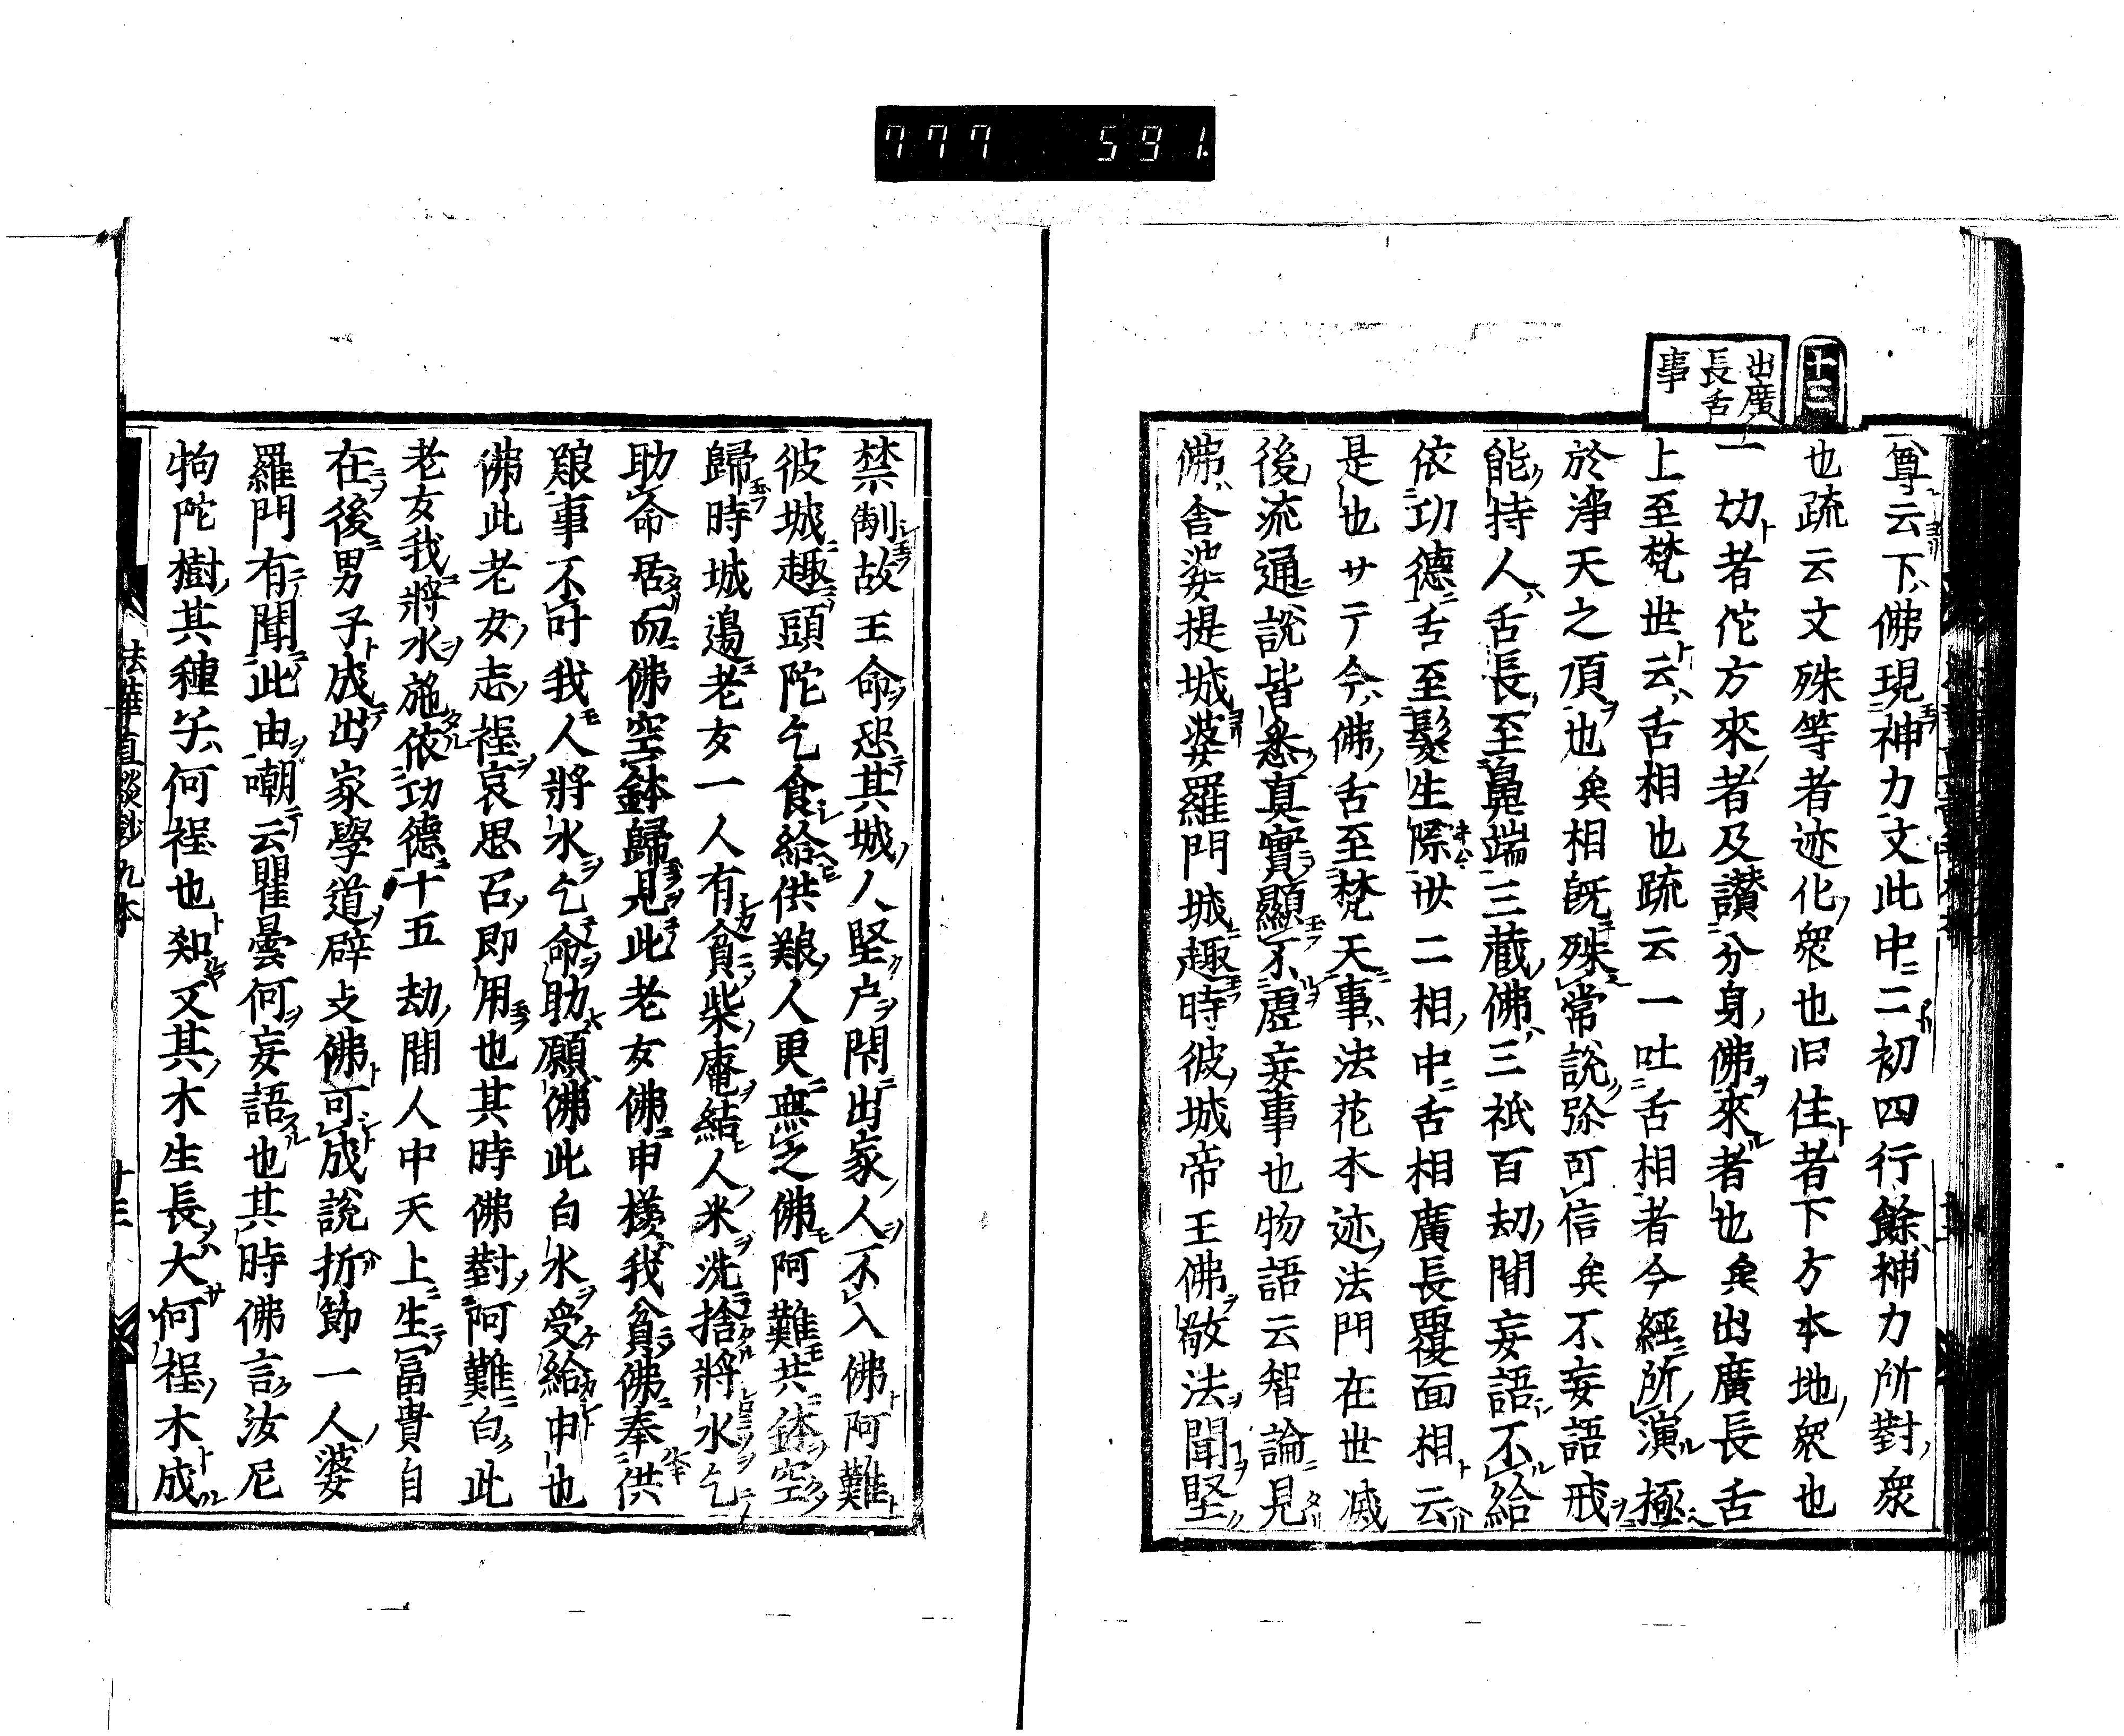 777 591.
十三
出廣
長舌
事
尊云下佛現神力文此中二初四行餘神力所對衆
也疏云文殊等者迹化衆也旧住者下方本地衆也
一切者佗方來者及讃分身佛來者也矣出廣長舌
上至梵世云舌相也疏云一吐舌相者今經所演極
於淨天之頂也矣相既殊常說弥可信矣不妄語戒
能持人舌長至鼻端三藏佛三祇百劫間妄語不給
依功德舌至髮生際卅二相中舌相廣長覆面相云
是也サテ今佛舌至梵天事法花本迹法門在世滅
後流通說皆悉真實顯不虛妄事也物語云智論見
佛舍婆提城婆羅門城趣時彼城帝王佛敬法聞堅
禁制故王命恐其城人堅户閇出家人不入佛阿難
彼城趣頭陀乞食給供艱人更無之佛阿難共鉢空
歸時城邊老女一人有貧柴庵結人米洗捨將水乞
助命居而佛空鉢歸見此老女佛申樣我貧佛奉供
艱事不叶我人將水乞命助願佛此白水受給申也
佛此老女志程哀思召即用也其時佛對阿難白此
老女我將水施依功德十五劫間人中天上生冨貴自
在後男子成出家學道辟支佛可成說折節一人婆
羅門有聞此由嘲云瞿曇何妄語也其時佛言汝尼
拘陀樹其種子何程也知又其木生長大何程木成
法華直談鈔九本
十三